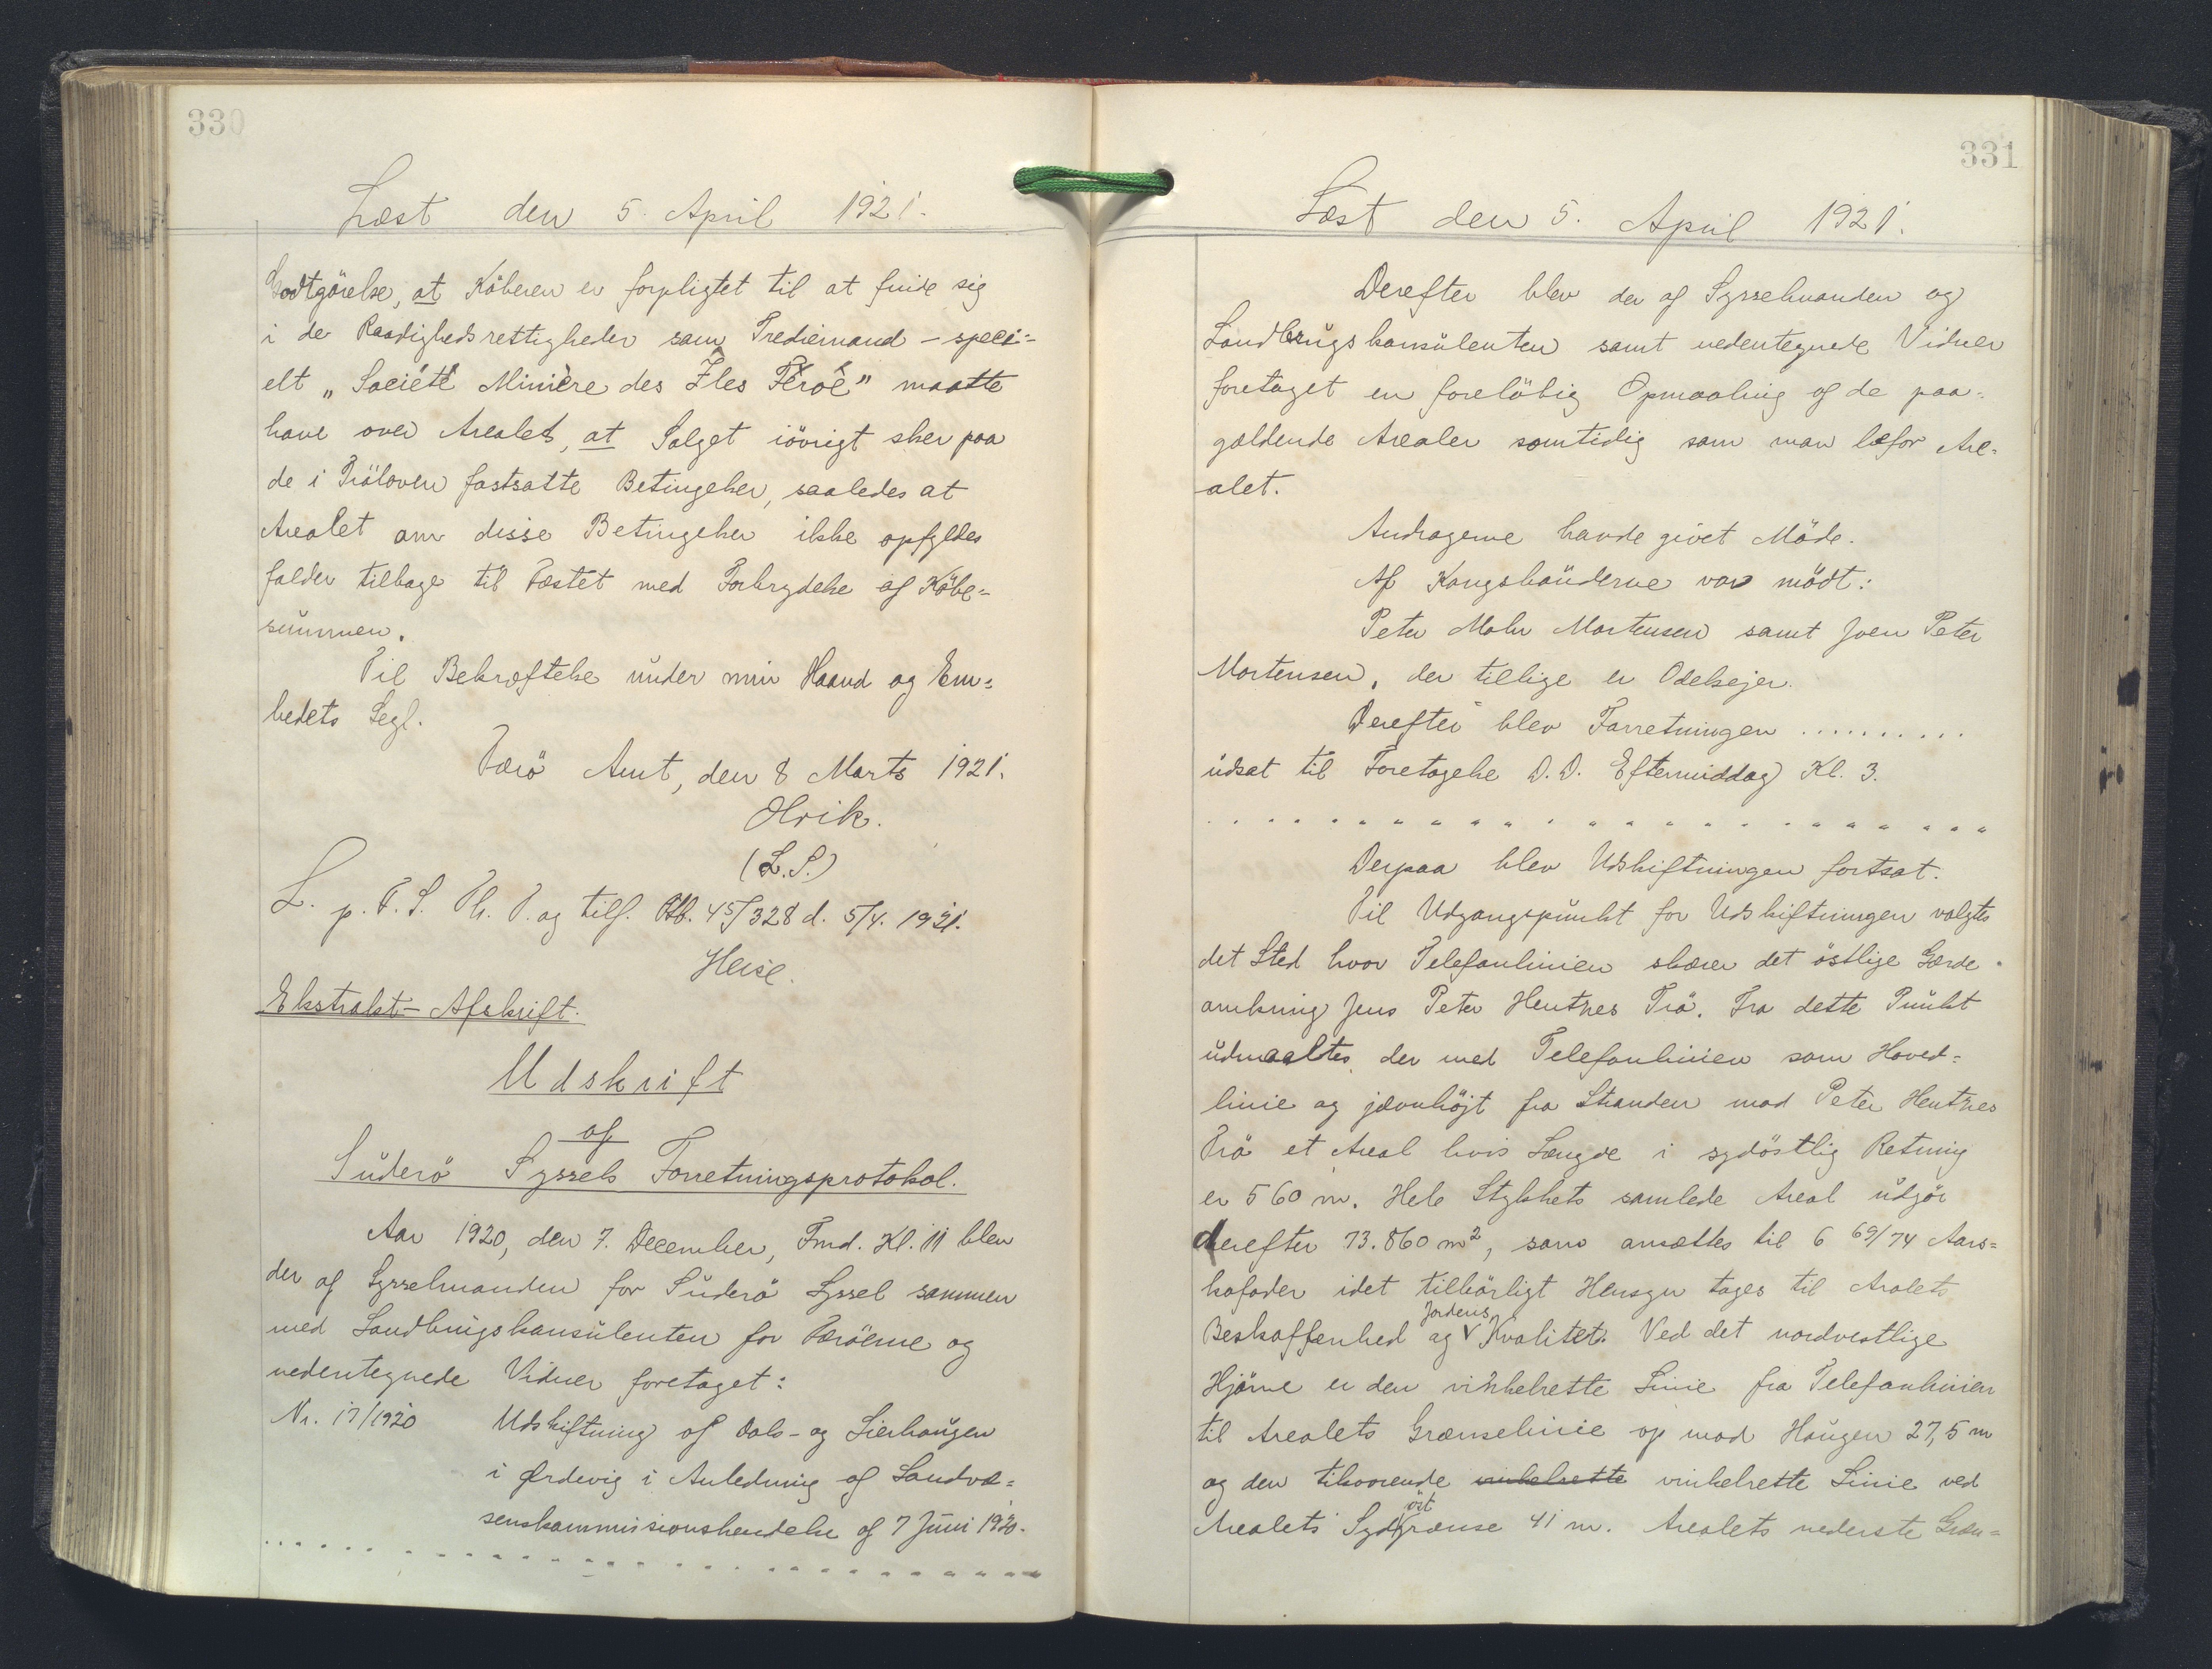 330
Læst den 5. April 1921.
Godtgörelse, at Köberen er forpligtet til at finde sig
i de Raadighedsrettigheder som Trediemand - speci-
elt „Société Minière des Iles Féroé" maatte
have over Arealet, at Salget iövrigt sker paa
de i Tröloven fastsatte Betingelser, saaledes at
Arealet om disse Betingelser ikke opfyldes
falder tilbage til Fæstet med Forbrydelse af Köbe-
summen.
Til Bekræftelse under min Haand og Em-
bedets Segl.
Færö Amt, den 8 Marts 1921.
Hvik.
(L.S.)
L. p. F. S. Th. P. og tilf. Ptb. 45/328 d. 5/4. 1921.
Heise.
Ekstrakt-Afskrift.
Udskrift
af
Suderö Syssels Forretningsprotokol.
Aar 1920, den 7. December, Fmd. Kl. 11 blev
der af Sysselmanden for Suderö Syssel sammen
med Landbrugskonsulenten for Færöerne og
nedentegnede Vidner foretaget:
Nr. 17/1920 Udskiftning af Dals- og Lierhaugen
i Ördevig i Anledning af Landvæ-
senskommissionskendelse af 7 Juni 1920.
331
Læst den 5. April 1921.
Derefter blev der af Sysselmanden og
Landbrugskonsulenten samt nedentegnede Vidner
foretaget en forelöbig Opmaaling af de paa-
gældende Arealer samtidig som man befor Are-
alet.
Andragerne havde givet Möde.
Af Kongsbönderne var mödt:
Peter Mohr Mortensen samt Joen Peter
Mortensen, der tillige er Odelsejer.
Derefter blev Forretningen ..........
udsat til Foretagelse D.D. Eftermiddag Kl. 3.
Derpaa blev Udskiftningen fortsat.
Til Udgangspunkt for Udskiftningen valgtes
det Sted hvor Telefonlinien skærer det östlige Gærde
omkring Jens Peter Hentzes Trö. Fra dette Punkt
udmaaltes der med Telefonlinien som Hoved-
linie og jævnhöjt fra Stranden mod Peter Hentzes
Trö et Areal hvis Længde i sydöstlig Retning
er 560 m. Hele Stykkets samlede Areal udgör
derefter 73.860 m², som ansættes til 6 69/74 Aars-
kofoder idet tilbörligt Hensyn tages til Aralets
Beskaffenhed og Jordens Kvalitet. Ved det nordvestlige
Hjörne er den vinkelrette Linie fra Telefonlinien
til Arealets Grænselinie op mod Haugen 27,5 m
og den tilsvarende vinkelrette vinkelrette Linie ved
Arealets Sydöstgrænse 41 m. Arealets nederste Græn-